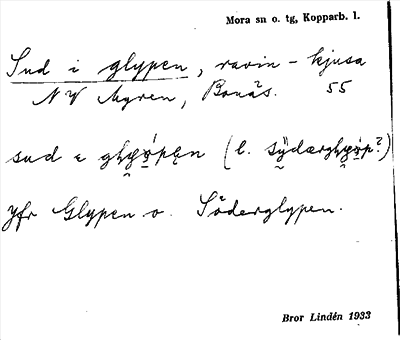 Mora sn o. tg, Kopparb. l.
Sud i glypen, ravin - kjusa
NV Myren, Bonäs. 55
sud
Jfr Glypen o. Söderglypen.
Bror Lindén 1933